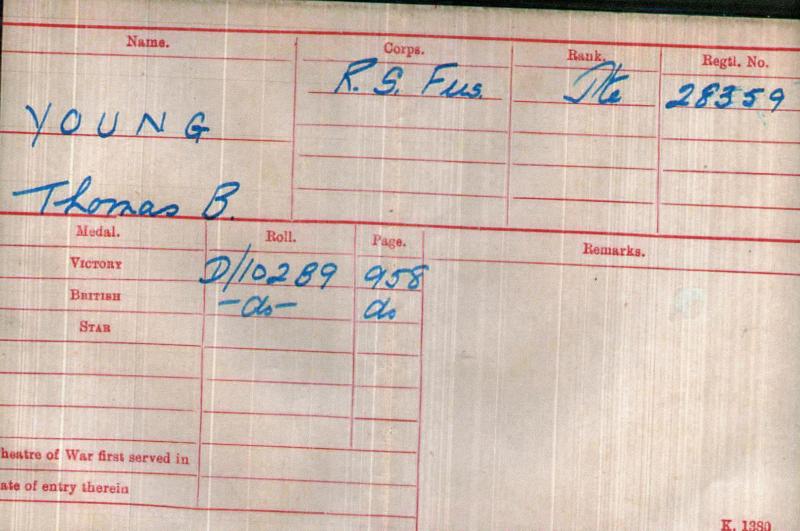 Name. Corps. Rank. Regtl. No.
R. S. Fus. Pte 28359
YOUNG
Thomas B.
Medal. Roll. Page. Remarks.
VICTORY D/102B9 958
BRITISH -do- do
STAR
heatre of War first served in
ate of entry therein
K. 1380